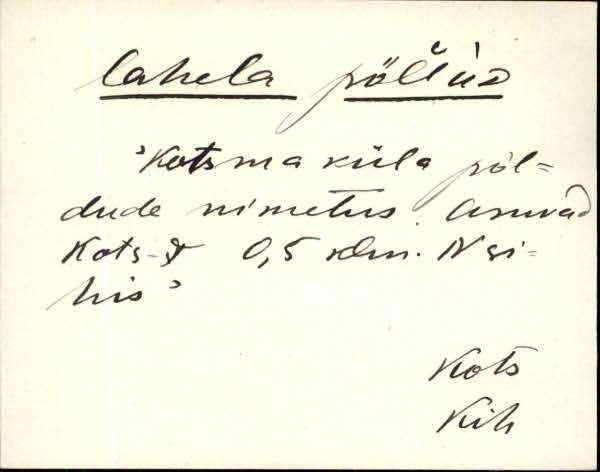 lahela põllud
'Kotsma küla põl=
dude nimetus. Asuvad
Kots-st 0,5 klm. N si-
his'
Kots
Kih